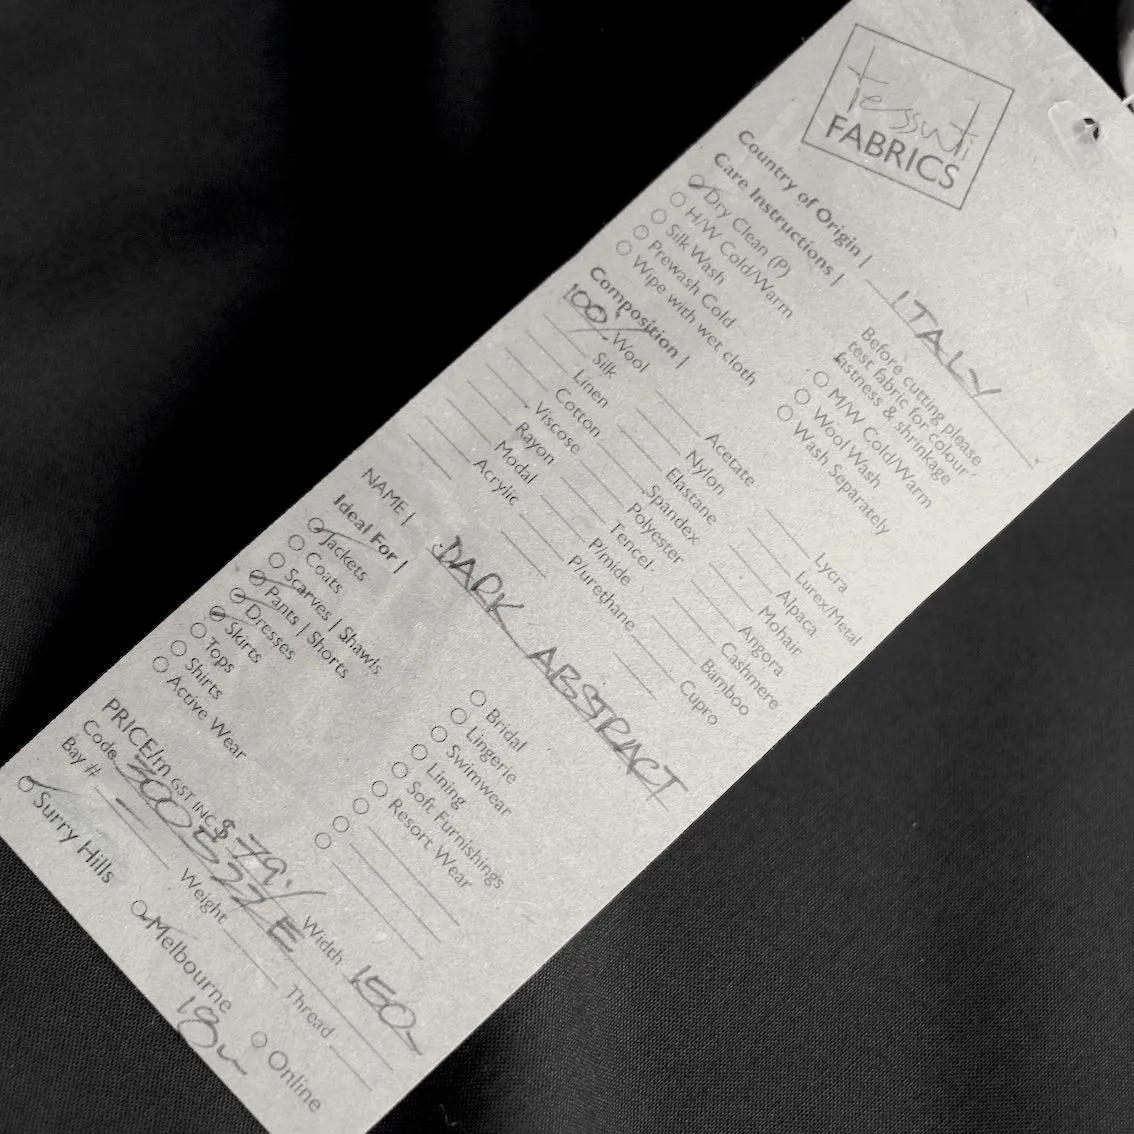 tessuti
FABRICS
Country of Origin | ITALY
Care Instructions |
Dry Clean (P)
H/W Cold/Warm
Silk Wash
Prewash Cold
Wipe with wet cloth
Before cutting please
test fabric for colour
fastness & shrinkage
M/W Cold/Warm
Wool Wash
Wash Separately
Composition |
100% Wool
Silk
Linen
Cotton
Viscose
Rayon
Modal
Acrylic
Acetate
Nylon
Elastane
Spandex
Polyester
Tencel
P/mide
P/urethane
Lycra
Lurex/Metal
Alpaca
Mohair
Angora
Cashmere
Bamboo
Cupro
NAME | DARK ABSTRACT
Ideal For |
Jackets
Coats
Scarves | Shawls
Pants | Shorts
Dresses
Skirts
Tops
Shirts
Active Wear
Bridal
Lingerie
Swimwear
Lining
Soft Furnishings
Resort Wear
PRICE/m GST INC. $79.
Width 150
Code
Bay #
Weight
Thread
Surry Hills
Melbourne
Online